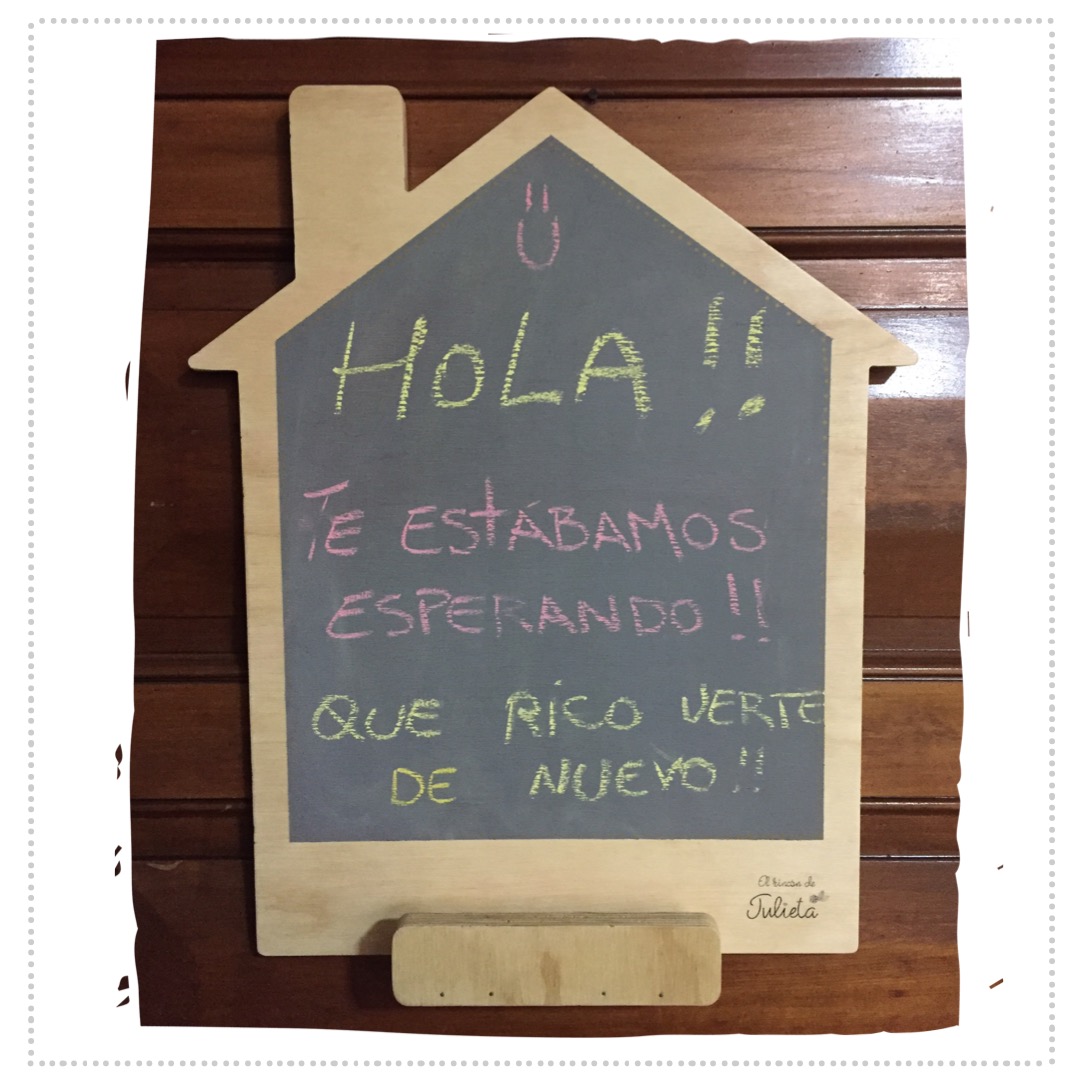 Ü
HOLA!!
TE ESTÁBAMOS
ESPERANDO!!
QUE RICO VERTE
DE NUEVO!!
El rincon de
Julieta